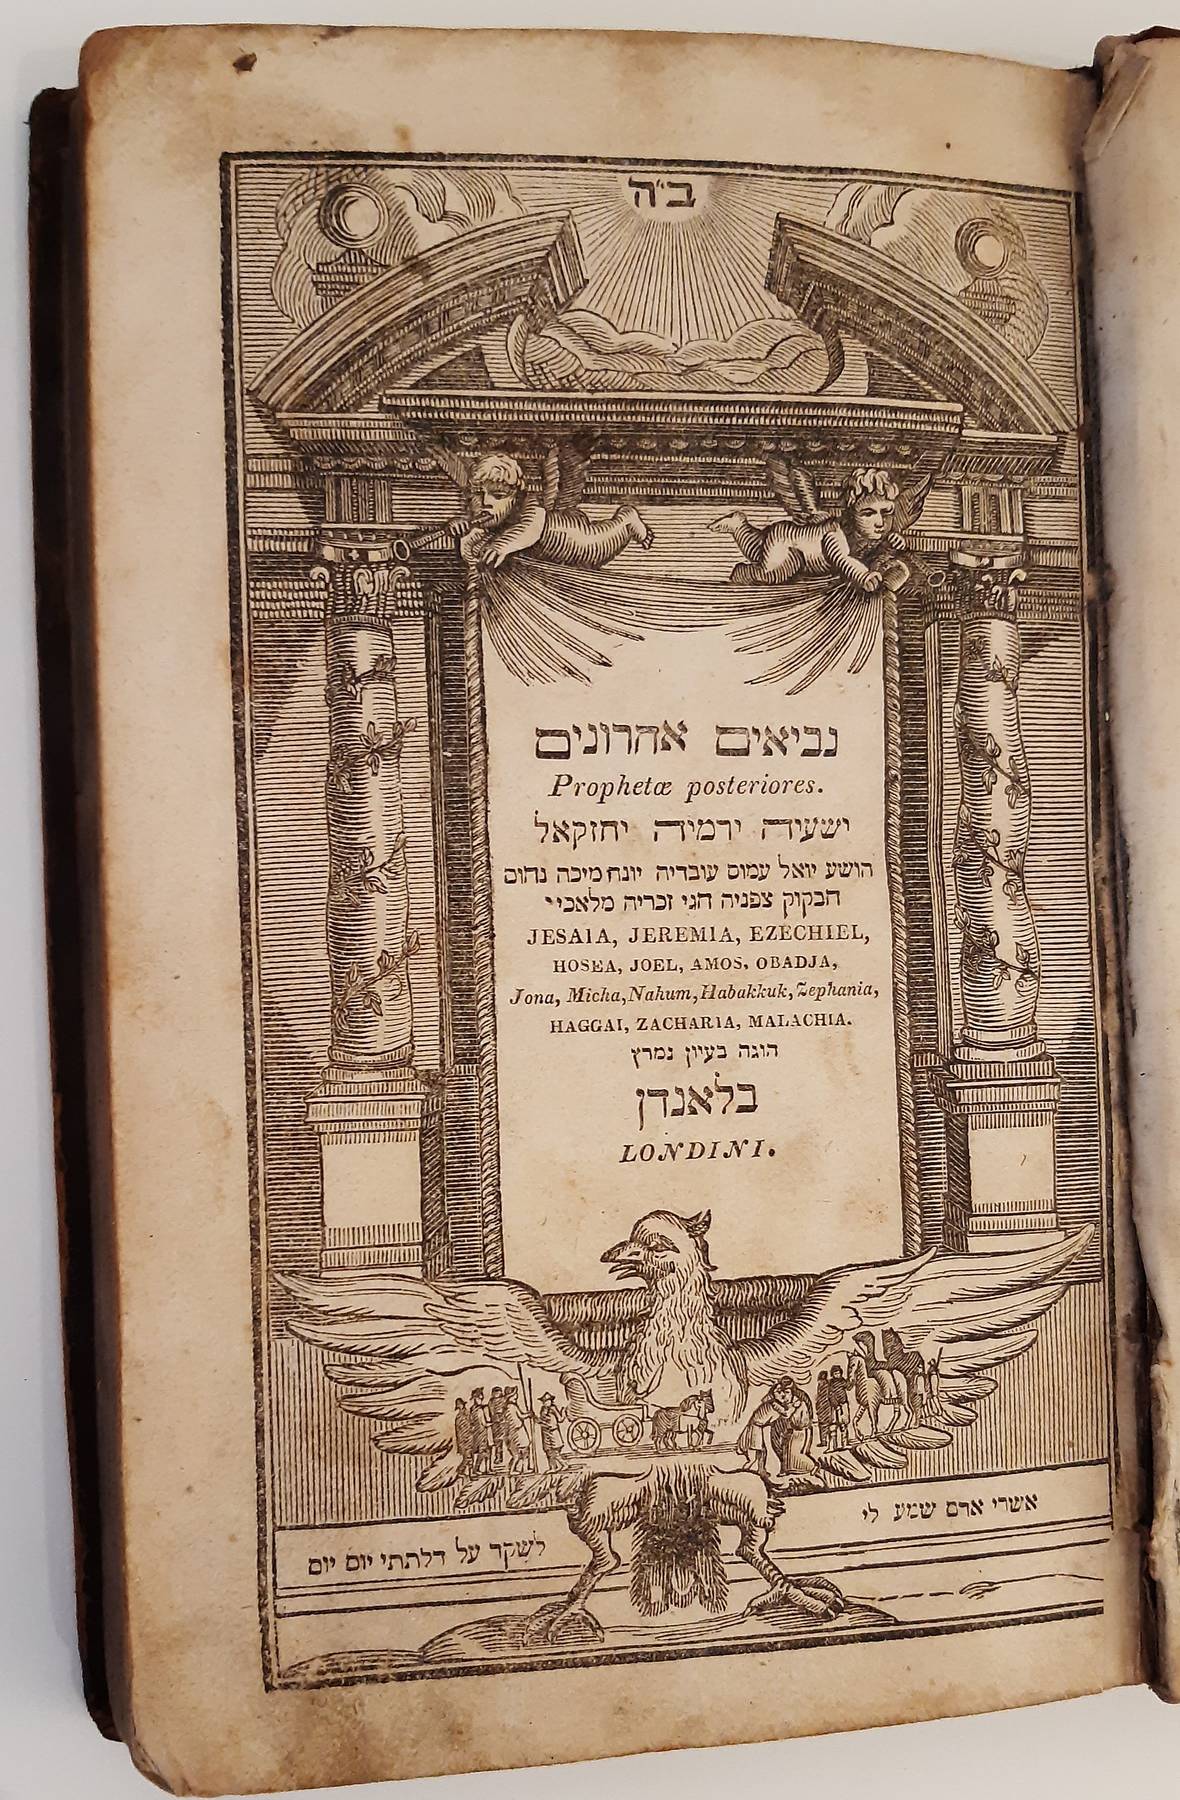 ב״ה
נביאים אחרונים
Prophetæ posteriores.
ישעיה ירמיה יחזקאל
הושע יואל עמוס עובדיה יונה מיכה נחום
חבקוק צפניה חגי זכריה מלאכיי
JESAIA, JEREMIA, EZECHIEL,
HOSEA, JOEL, AMOS, OBADJA,
Jona, Micha, Nahum, Habakkuk, Zephania,
HAGGAI, ZACHARIA, MALACHIA.
הוגה בעיון נמרץ
בלאנדן
LONDINI.
אשרי אדם שמע לי
לשקד על דלתתי יום יום